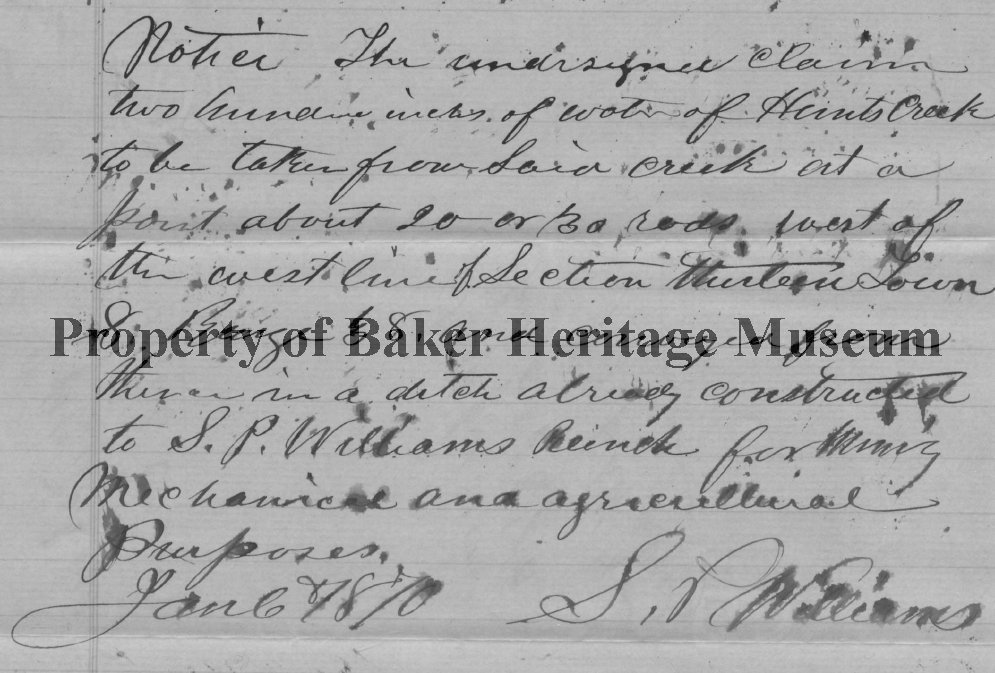 Notice The undersigned claim
two hundred inches of water of Hunts Creek
to be taken from said creek at a
point about 20 or 30 rods west of
the west line of Section thirteen Town
8. Range 38. and conveyed from
Property of Baker Heritage Museum
thence in a ditch already constructed
to S. P. Williams Ranch for Mining
Mechanical and agricultural
Purposes.
Jan 6th 1870 S. P. Williams